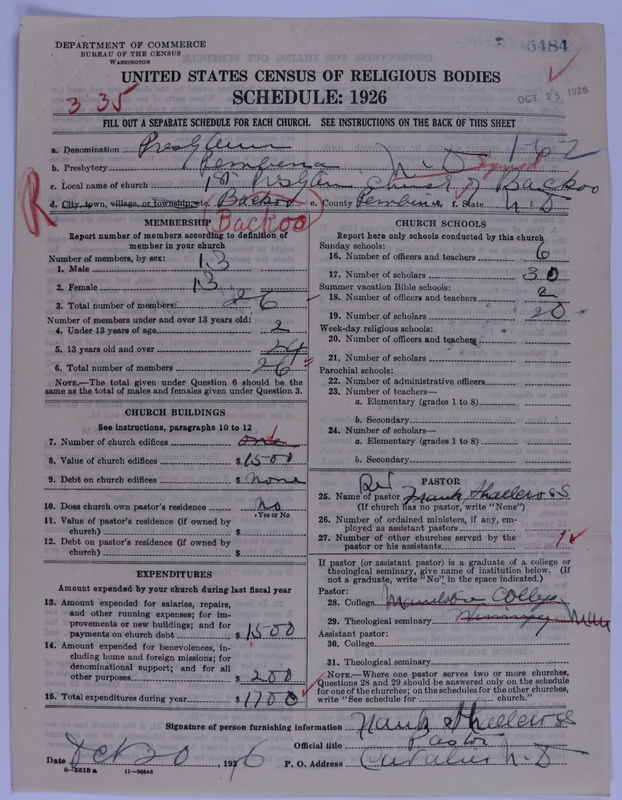 5484
DEPARTMENT OF COMMERCE
BUREAU OF THE CENSUS
WASHINGTON
UNITED STATES CENSUS OF RELIGIOUS BODIES
SCHEDULE: 1926
3 35
OCT 25 1926
FILL OUT A SEPARATE SCHEDULE FOR EACH CHURCH. SEE INSTRUCTIONS ON THE BACK OF THIS SHEET
a. Denomination
1-62
b. Presbytery Pembina N.D Synod
c. Local name of church 1st Church of Backoo
d. City, town, village, or township, etc. Backoo e. County Pembina f. State N D
R
Backoo
MEMBERSHIP
Report number of members according to definition of
member in your church
Number of members, by sex:
1. Male 13
2. Female 13
3. Total number of members 26
Number of members under and over 13 years old:
4. Under 13 years of age 2
5. 13 years old and over 24
6. Total number of members 26
NOTE.—The total given under Question 6 should be the
same as the total of males and females given under Question 3.
CHURCH BUILDINGS
See instructions, paragraphs 10 to 12
7. Number of church edifices one
8. Value of church edifices $ 1500
9. Debt on church edifices $ none
10. Does church own pastor's residence no
Yes or No
11. Value of pastor's residence (if owned by
church) $
12. Debt on pastor's residence (if owned by
church) $
EXPENDITURES
Amount expended by your church during last fiscal year
13. Amount expended for salaries, repairs,
and other running expenses; for im-
provements or new buildings; and for
payments on church debt $ 1500
14. Amount expended for benevolences, in-
cluding home and foreign missions; for
denominational support; and for all
other purposes $ 200
15. Total expenditures during year $ 1700
CHURCH SCHOOLS
Report here only schools conducted by this church
Sunday schools:
16. Number of officers and teachers 6
17. Number of scholars 30
Summer vacation Bible schools:
18. Number of officers and teachers 2
19. Number of scholars 20
Week-day religious schools:
20. Number of officers and teachers
21. Number of scholars
Parochial schools:
22. Number of administrative officers
23. Number of teachers—
a. Elementary (grades 1 to 8)
b. Secondary
24. Number of scholars—
a. Elementary (grades 1 to 8)
b. Secondary
PASTOR
25. Name of pastor Rev Frank Shallcross
(If church has no pastor, write "None")
26. Number of ordained ministers, if any, em-
ployed as assistant pastors
27. Number of other churches served by the
pastor or his assistants 1
If pastor (or assistant pastor) is a graduate of a college or
theological seminary, give name of institution below. (If
not a graduate, write "No" in the space indicated.)
Pastor:
28. College Manitoba College
29. Theological seminary Winnipeg Man
Assistant pastor:
30. College
31. Theological seminary
NOTE.—Where one pastor serves two or more churches,
Questions 28 and 29 should be answered only on the schedule
for one of the churches; on the schedules for the other churches,
write "See schedule for church."
Signature of person furnishing information Frank Shallcross
Official title Pastor
Date Oct 20 1926 P. O. Address Cavalier N.D
8—5518a 11—90546